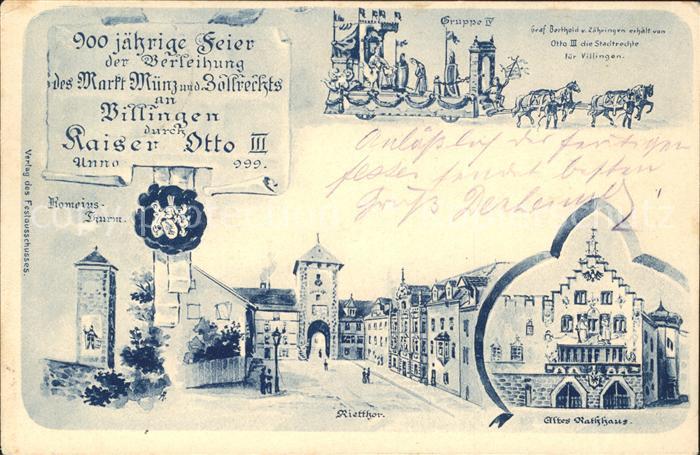 900 jährige Feier
der Verleihung
des Markt Münz und Zollrechts
an
Villingen
durch
Kaiser Otto III
Anno 999.
Gruppe IV
Graf Berthold v. Zähringen erhält von
Otto III die Stadtrechte
für Villingen.
Anläßlich der heutigen
festes sendet besten
Gruß
Romeius-
Thurm.
Verlag des Festausschusses.
Rietthor.
Altes Rathhaus.